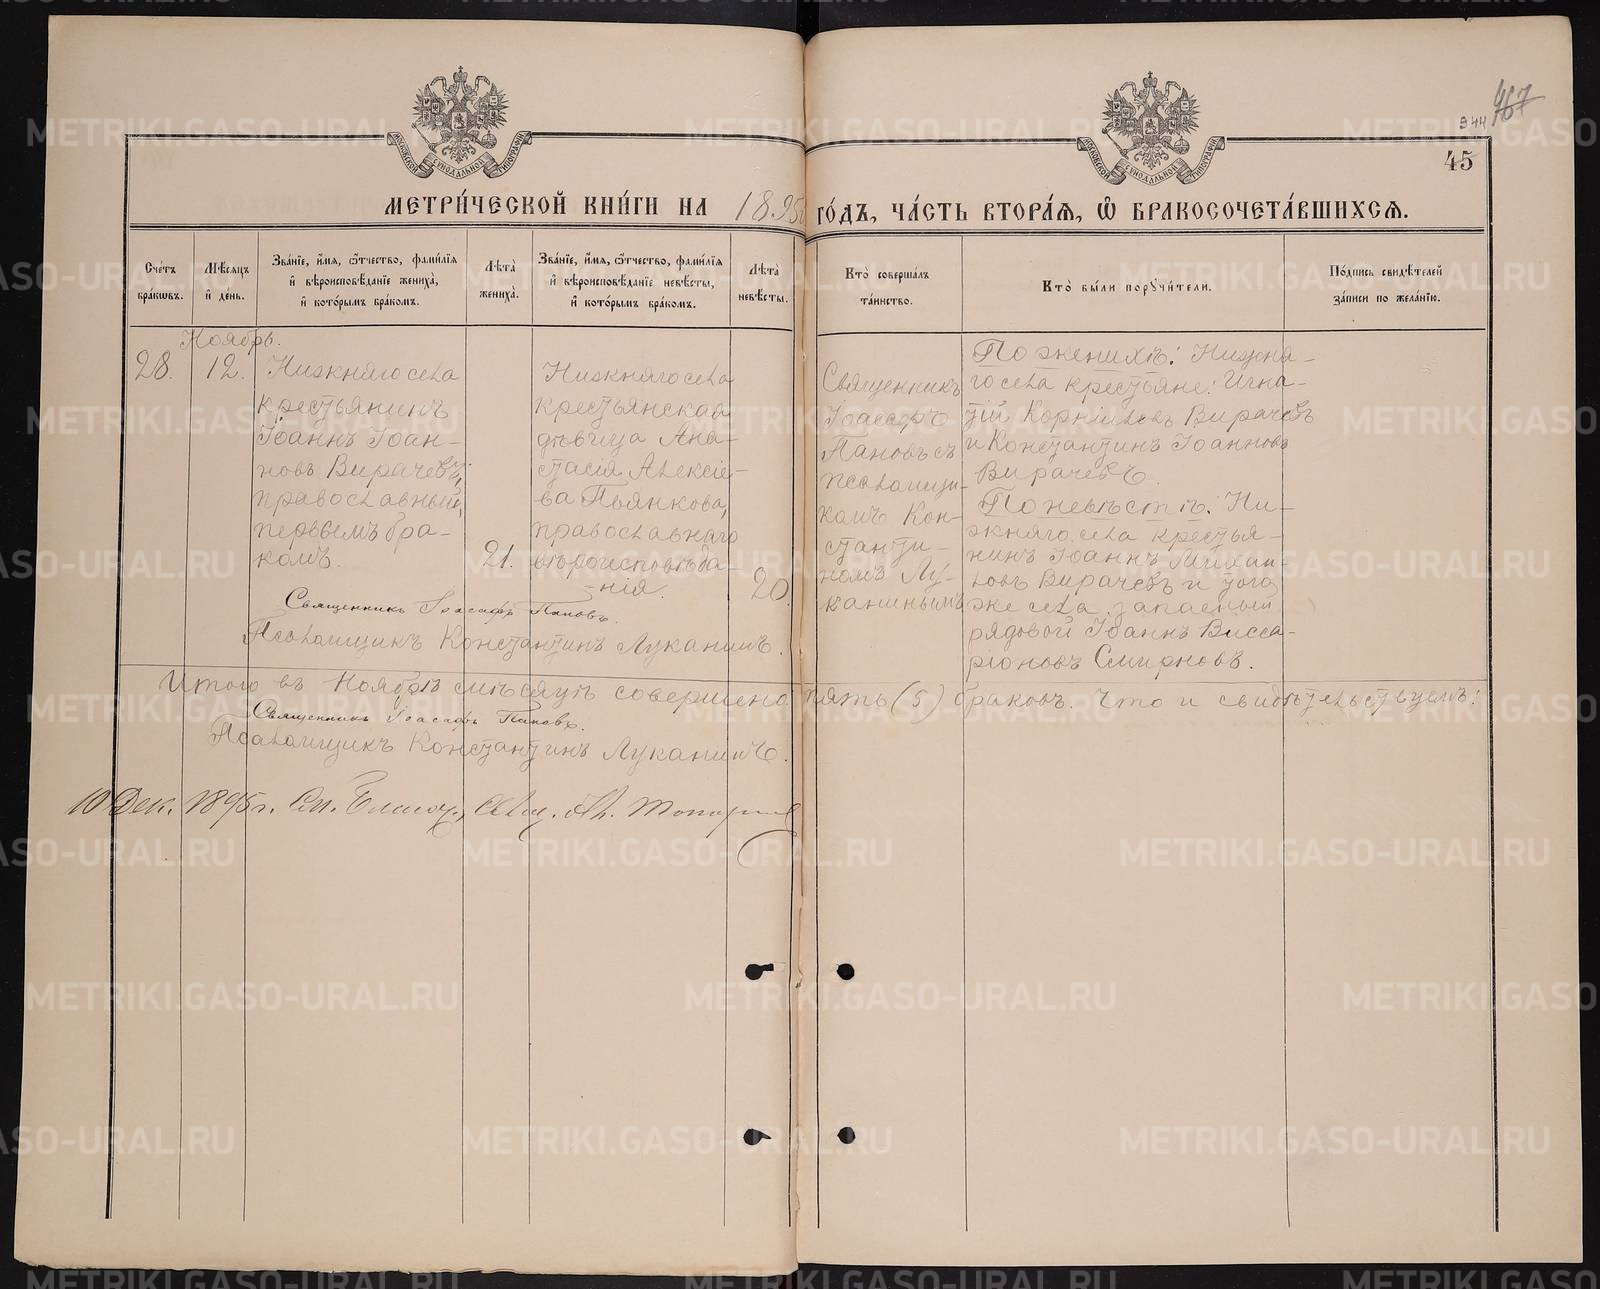 944 467
45
МЕТРИ́ЧЕСКОЙ КНИ́ГИ НА 1895 ГО́ДЪ, ЧА́СТЬ ВТОРА́Ѧ, Ѽ БРАКОСОЧЕТА́ВШИХСѦ.
Сче́тъ бра́кѡвъ.
Мѣ́сѧцъ и҆ де́нь.
Зва́нїе, и҆́мѧ, ѻ҆́тчество, фами́лїѧ и҆ вѣроисповѣ́данїе жениха̀, и҆ кото́рымъ бра́комъ.
Лѣ́та жениха̀.
Зва́нїе, и҆́мѧ, ѻ҆́тчество, фами́лїѧ и҆ вѣроисповѣ́данїе невѣ́сты, и҆ кото́рымъ бра́комъ.
Лѣ́та невѣ́сты.
Кто̀ соверша́лъ та́инство.
Кто̀ бы́ли порꙋчи́тели.
По́дпись свидѣ́телей за́писи по жела́нїю.
Ноябрь.
28.
12.
Нижняго села
крестьянинъ
Іоаннъ Іоан-
новъ Вирачевъ,
православный,
первымъ бра-
комъ.
21.
Нижняго села
крестьянская
дѣвица Ана-
стасія Алексіе-
ва Пьянкова,
православнаго
вѣроисповѣда-
нія.
20.
Священникъ
Іоасафъ
Пановъ съ
псаломщи-
комъ Кон-
станти-
номъ Лу-
канинымъ
По женихѣ: Нижня-
го села крестьяне: Игна-
тій Корниловъ Вирачевъ
и Константинъ Іоанновъ
Вирачевъ.
По невѣстѣ: Ни-
жняго села крестья-
нинъ Іоаннъ Михаи-
ловъ Вирачевъ и того
же села запасный
рядовой Іоаннъ Висса-
ріоновъ Смирновъ.
Священникъ Іоасафъ Пановъ.
Псаломщикъ Константинъ Луканинъ.
Итого въ Ноябрѣ мѣсяцѣ совершено пять (5) браковъ. Что и свидѣтельствуемъ:
Священникъ Іоасафъ Пановъ.
Псаломщикъ Константинъ Луканинъ.
10 Дек. 1895 г. Благоч., Свящ.
METRIKI.GASO-URAL.RU